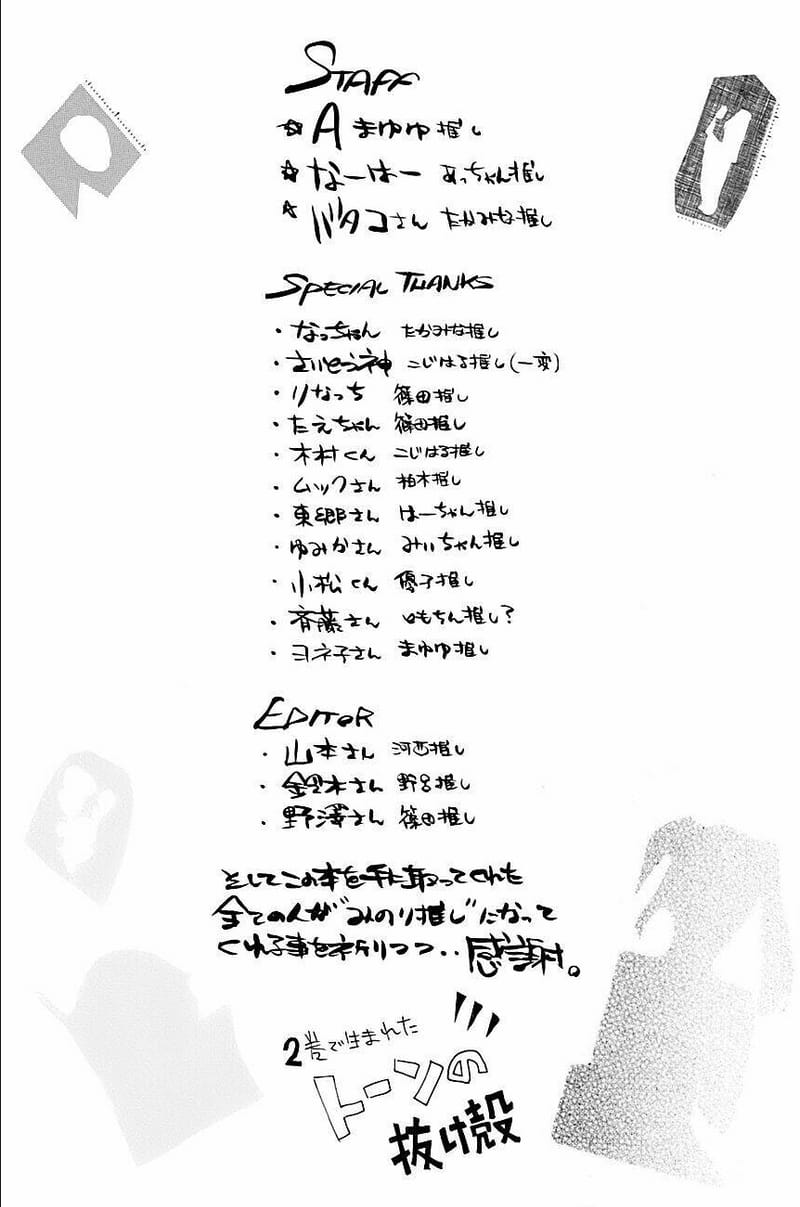 STAFF
☆A まゆゆ推し
☆なーはー あっちゃん推し
☆バタコさん たかみな推し
SPECIAL THANKS
・なっちゃん たかみな推し
・さいとう神 こじはる推し(一変)
・りなっち 篠田推し
・たえちゃん 篠田推し
・木村くん こじはる推し
・ムックさん 柏木推し
・東郷さん はーちゃん推し
・ゆみかさん みぃちゃん推し
・小松くん 優子推し
・斉藤さん ともちん推し?
・ヨネ子さん まゆゆ推し
EDITOR
・山本さん 河西推し
・鈴木さん 野呂推し
・野澤さん 篠田推し
そしてこの本を手に取ってくれた
全ての人が"みのり推し"になって
くれる事を祈りつつ‥感謝。
2巻で生まれた
トーンの
抜け殻